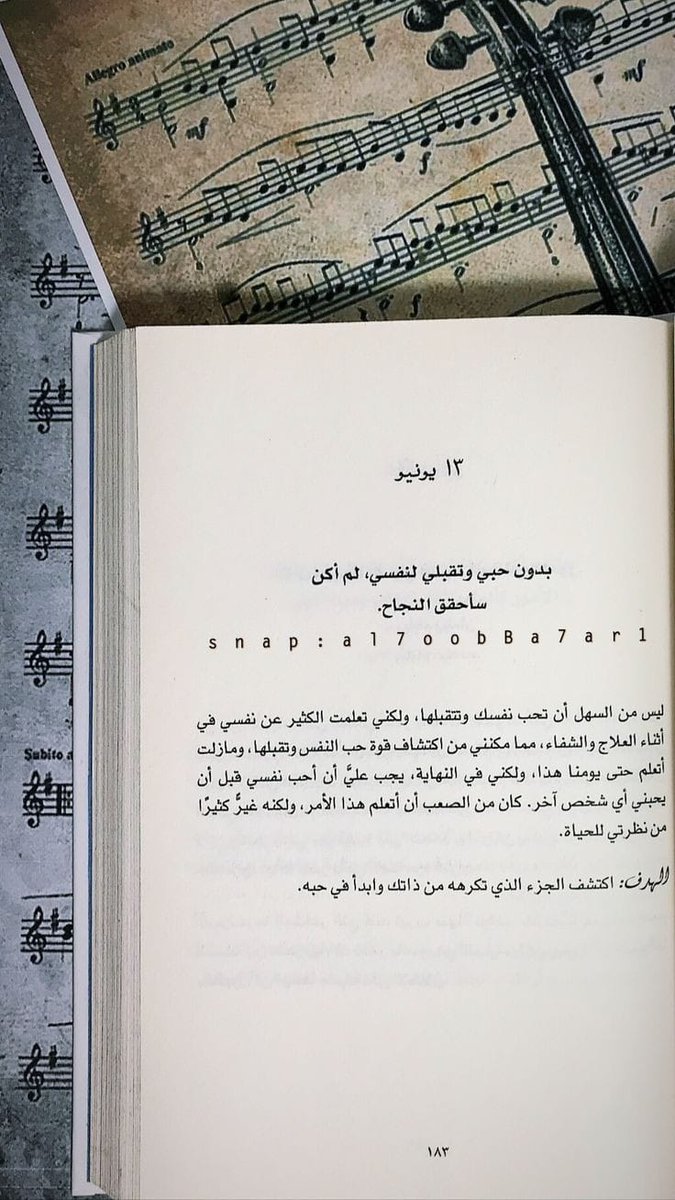 Allegro animato
mf
f
mf
Subito a
١٣ يونيو
بدون حبي وتقبلي لنفسي، لم أكن
سأحقق النجاح.
snap:al7oobBa7ar1
ليس من السهل أن تحب نفسك وتتقبلها، ولكني تعلمت الكثير عن نفسي في
أثناء العلاج والشفاء، مما مكنني من اكتشاف قوة حب النفس وتقبلها، ومازلت
أتعلم حتى يومنا هذا، ولكني في النهاية، يجب عليَّ أن أحب نفسي قبل أن
يحبني أي شخص آخر. كان من الصعب أن أتعلم هذا الأمر، ولكنه غيرَّ كثيرًا
من نظرتي للحياة.
الهدف: اكتشف الجزء الذي تكرهه من ذاتك وابدأ في حبه.
١٨٣